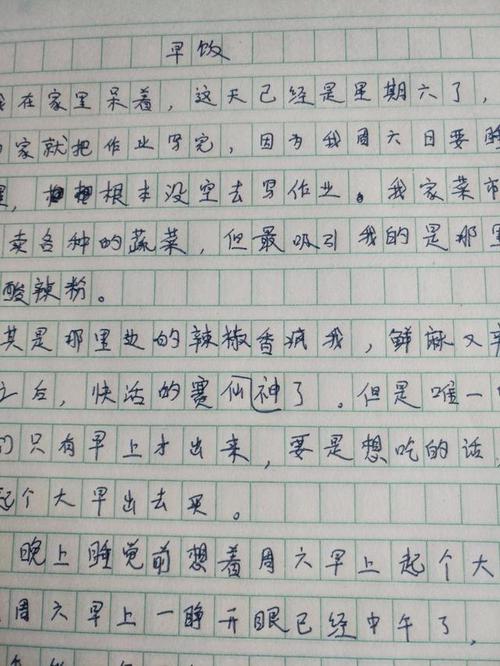 早饭
我在家里呆着，这天已经是星期六了，
家就把作业写完，因为我周六日要睡
根本没空去写作业。我家菜市
卖各种的蔬菜，但最吸引我的是那里
酸辣粉。
其是那里边的辣椒香疯我，鲜麻又辛
之后，快活的赛仙神了。但是唯一
们只有早上才出来，要是想吃的话，
起个大早出去买。
晚上睡觉前想着周六早上起个大
周六早上一睁开眼已经中午了，